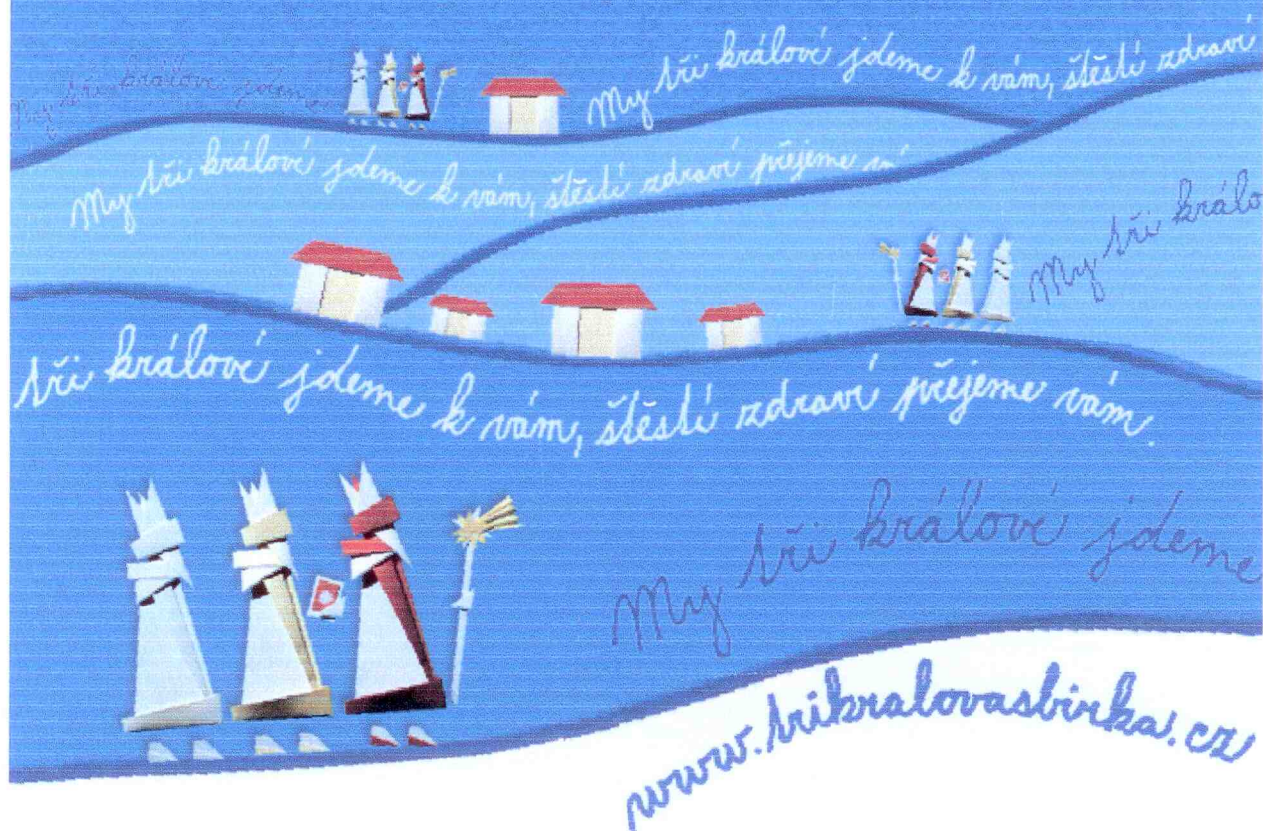 My tři králové jdeme k vám, štěstí zdraví
My tři králové jdeme
My tři králové jdeme k vám, štěstí zdraví přejeme vá
My tři králo
tři králové jdeme k vám, štěstí zdraví přejeme vám.
My tři králové jdeme
www.trikralovasbirka.cz